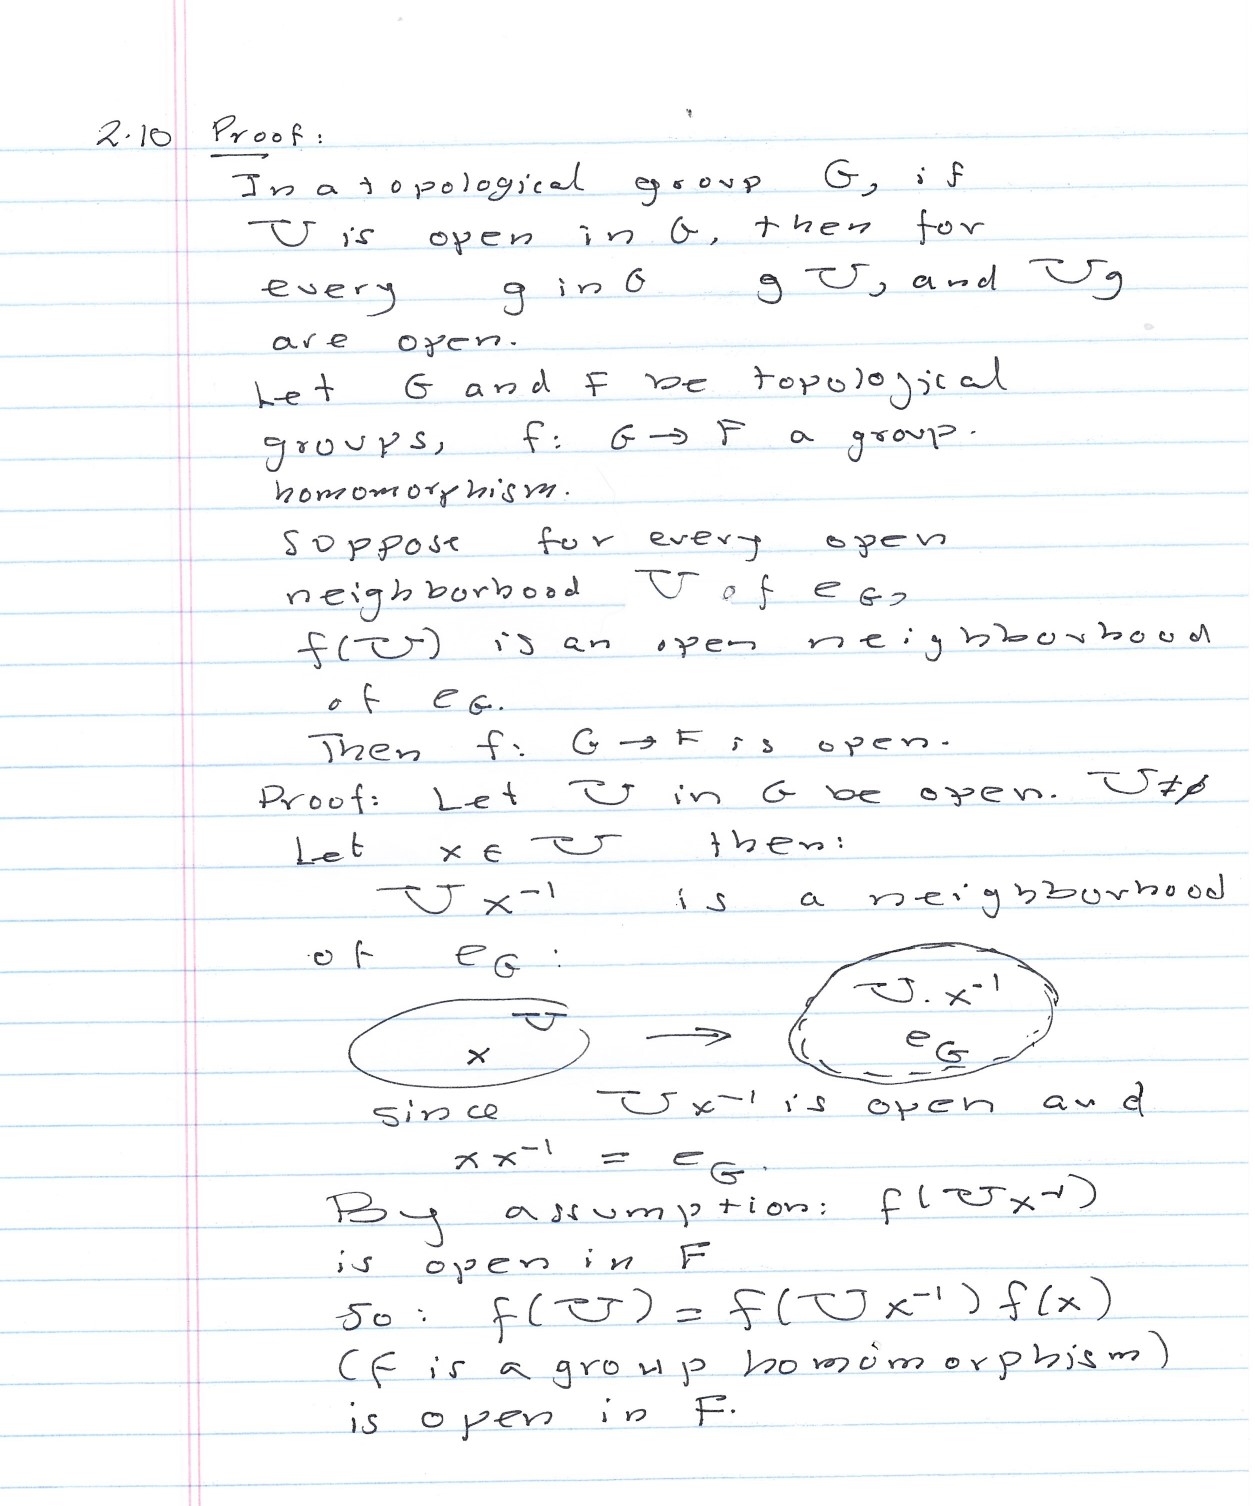 2.10 Proof:
In a topological group G, if
U is open in G, then for
every g in G g U, and Ug
are open.
Let G and F be topological
groups, f: G → F a group.
homomorphism.
Suppose for every open
neighborhood U of eG,
f(U) is an open neighborhood
of eG.
Then f: G → F is open.
Proof: Let U in G be open. U≠∅
Let x ∈ U then:
U x⁻¹ is a neighborhood
of eG:
U x → U. x⁻¹ eG
since U x⁻¹ is open and
x x⁻¹ = eG.
By assumption: f(U x⁻¹)
is open in F
So: f(U) = f(U x⁻¹) f(x)
(f is a group homomorphism)
is open in F.